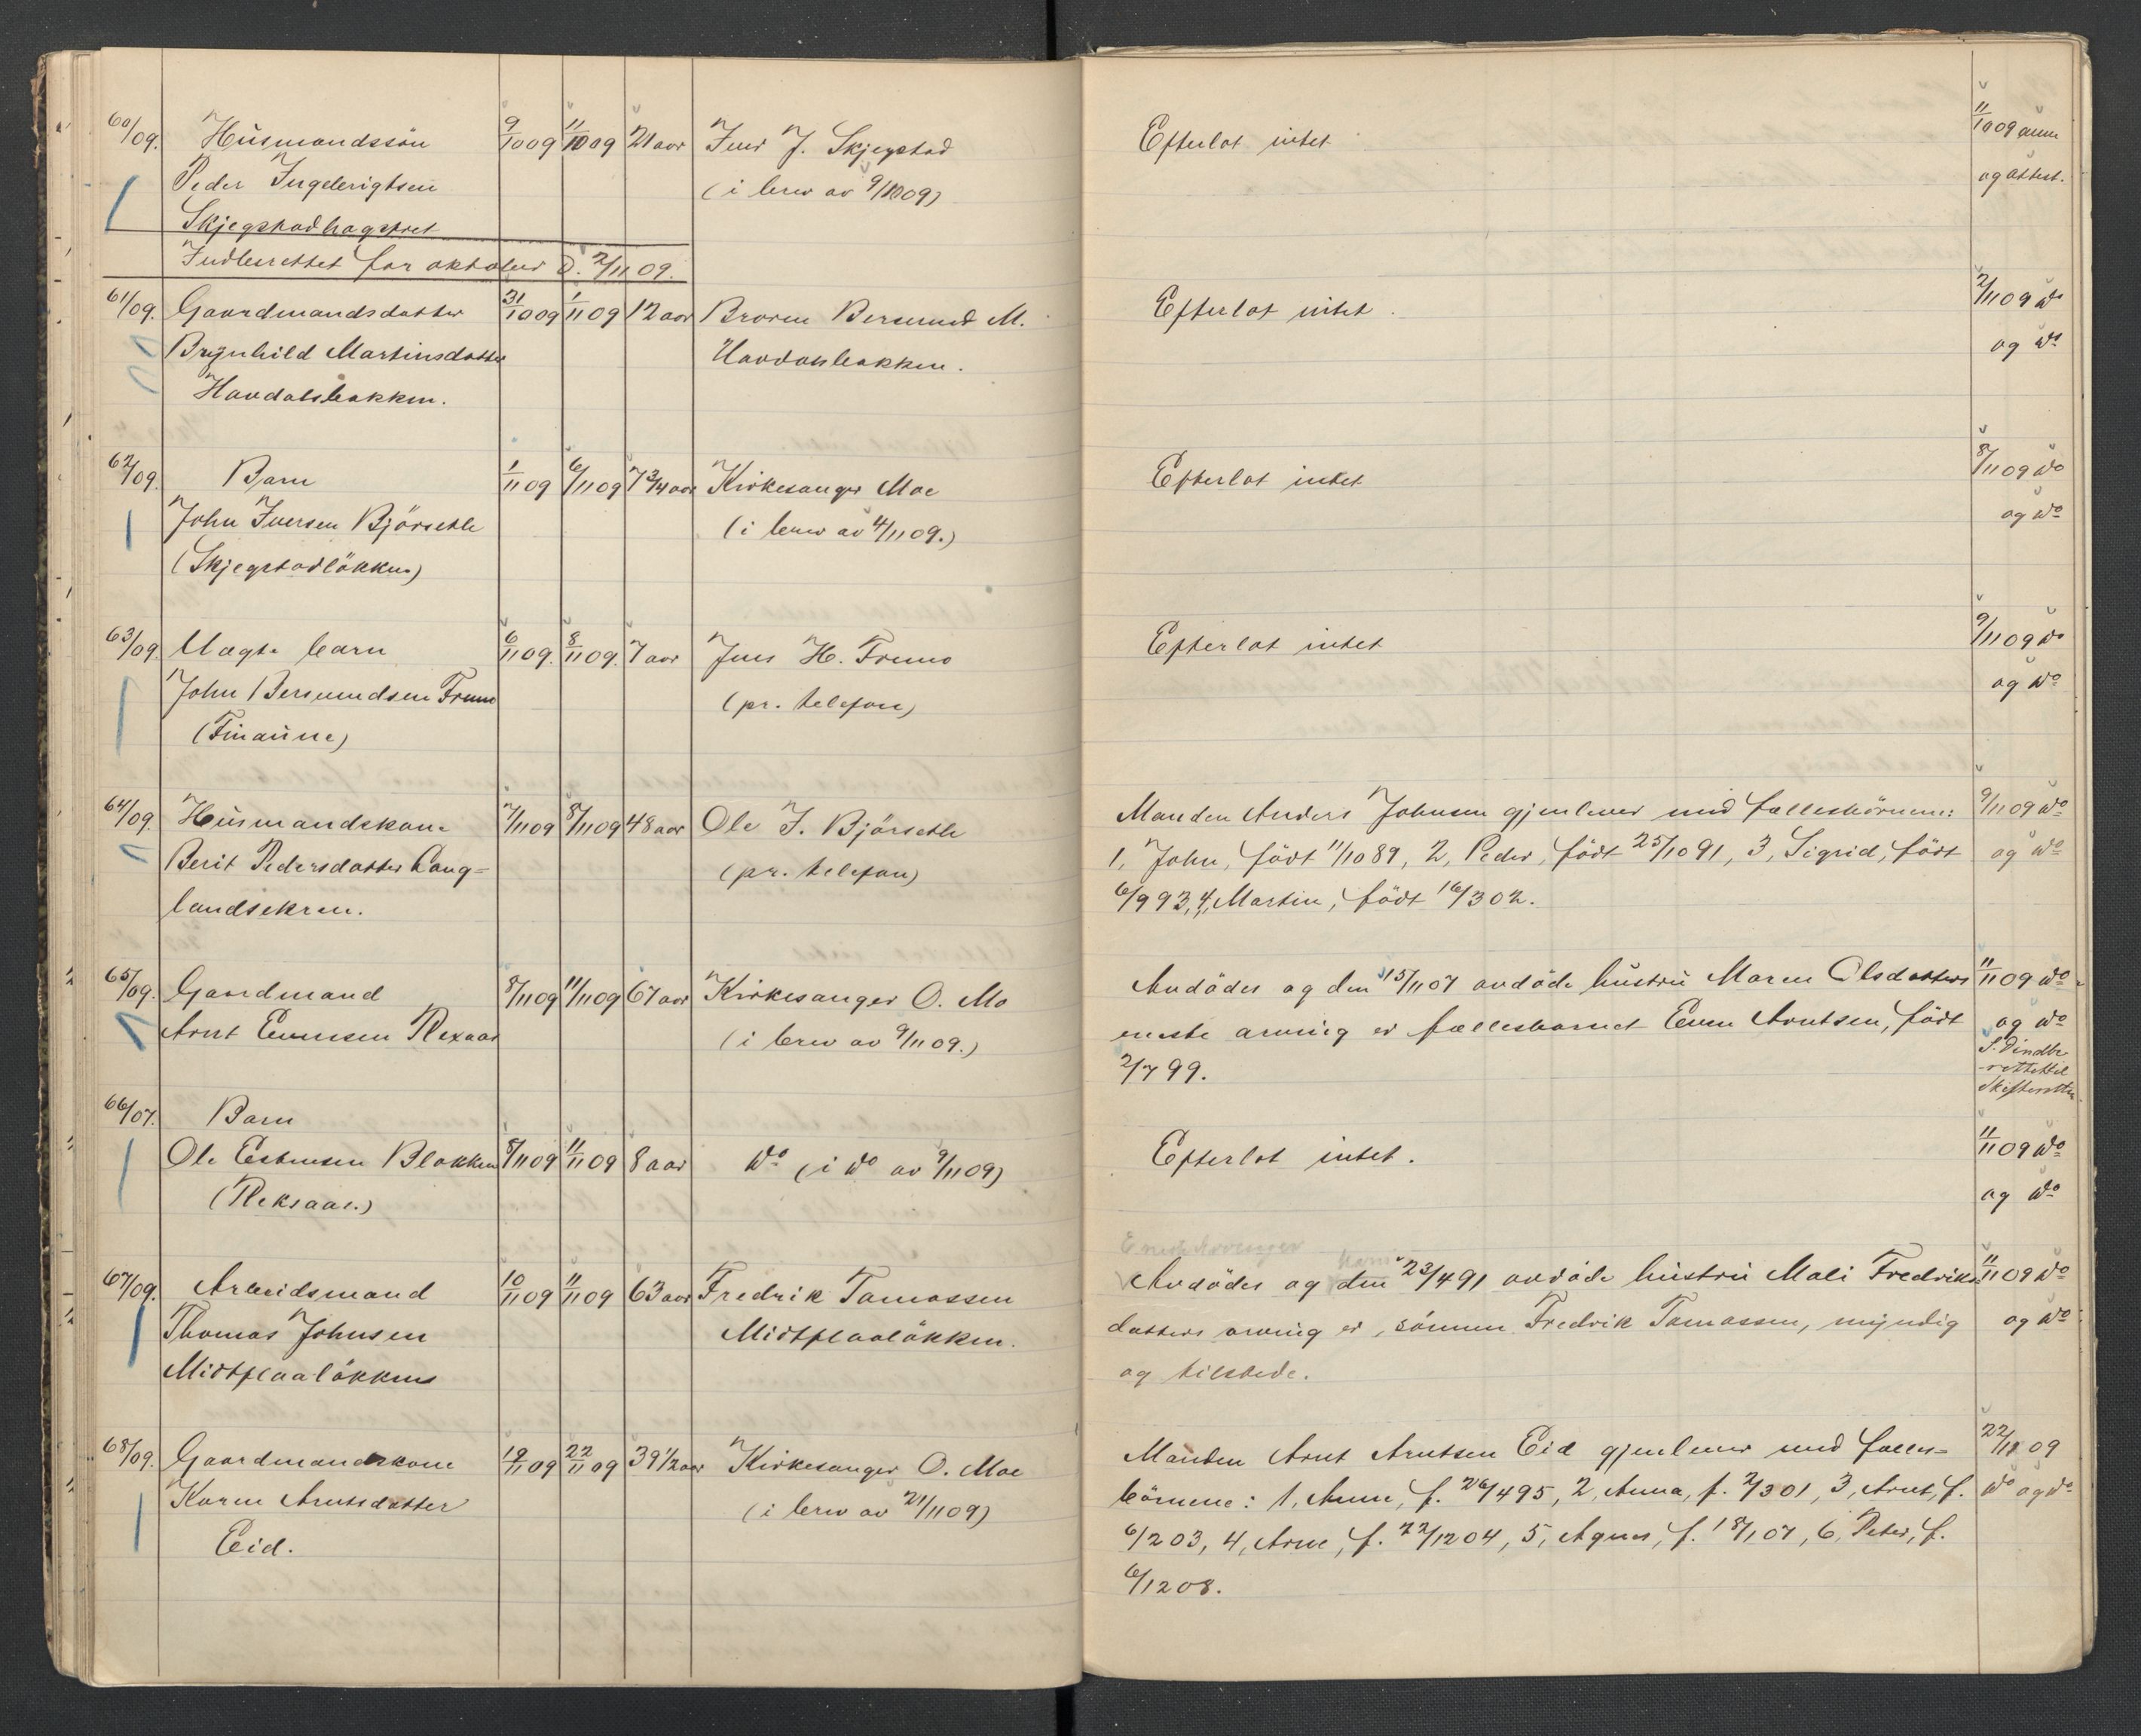 60/09. Husmandssön 9/10 09 11/10 09 21 aar Iver J. Skjegstad Efterlot intet 11/10 09 anm
Peder Ingebrigtsen (i brev av 9/10 09) og attest.
Skjegstadhagstret
Indberettet for oktober d. 2/11 09.
61/09. Gaardmandsdatter 31/10 09 1/11 09 12 aar Broren Bersvend M. Efterlot intet. 2/11 09 do
Brynhild Martinsdatter Haudalsbakken. og do
Haudalsbakken.
62/09. Barn 1/11 09 6/11 09 7 3/4 aar Kirkesanger Moe Efterlot intet 8/11 09 do
John Iversen Björsetle (i brev av 4/11 09.) og do
(Skjegstadlökken)
63/09. Uægte barn 6/11 09. 8/11 09. 7 aar Jens H. Fremo Efterlot intet 9/11 09 do
John Bersvendsen Fremo (pr. telefon) og do
64/09. Husmandskone 7/11 09 8/11 09 48 aar Ole J. Björsetle Manden Anders Johnsen gjenlever med fællesbörnene: 9/11 09 do
Berit Pedersdatter Laug= (pr. telefon) 1, John, födt 11/10 89, 2, Peder, födt 25/10 91, 3, Sigrid, födt og do
landsekren. 6/9 93, 4, Martin, födt 16/3 02.
65/09. Gaardmand 8/11 09 11/11 09 67 aar Kirkesanger O. Mo Avdödes og den 15/11 07 avdöde hustru Maren Olsdatters 11/11 09 do
Arnt Evensen Rexaas (i brev av 9/11 09.) eneste arving er fællesbarnet Even Arntsen, födt og do
2/7 99. S. D. indbe
-rettet til
Skifteretten.
66/07. Barn
Ole Estensen Blokken 8/11 09 11/11 09 8 aar do (i do av 9/11 09) Efterlot intet. 11/11 09 do
(Reksaas.) og do
Eneste Arvinger
67/09. Arbeidsmand 10/11 09 11/11 09 63 aar Fredrik Tomassen Avdödes og den 23/4 91 avdöde hustru Mali Fredriks 11/11 09 do
Thomas Johnsen Midtflaalökken. datters arving er, sönnen Fredrik Tomassen, myndig og do
Midtflaalökken og tilstede.
68/09. Gaardmandskone 19/11 09 22/11 09 39 1/2 aar Kirkesanger O. Moe Manden Arnt Arntsen Eid gjenlever med fælles= 22/11 09
Karen Arntsdatter (i brev av 21/11 09) börnene: 1, Anne, f. 26/4 95, 2, Anna, f. 2/3 01, 3, Arnt, f. do og do
Eid. 6/2 03, 4, Arne, f. 22/12 04, 5, Agnes, f. 18/1 07, 6, Peter, f.
6/12 08.